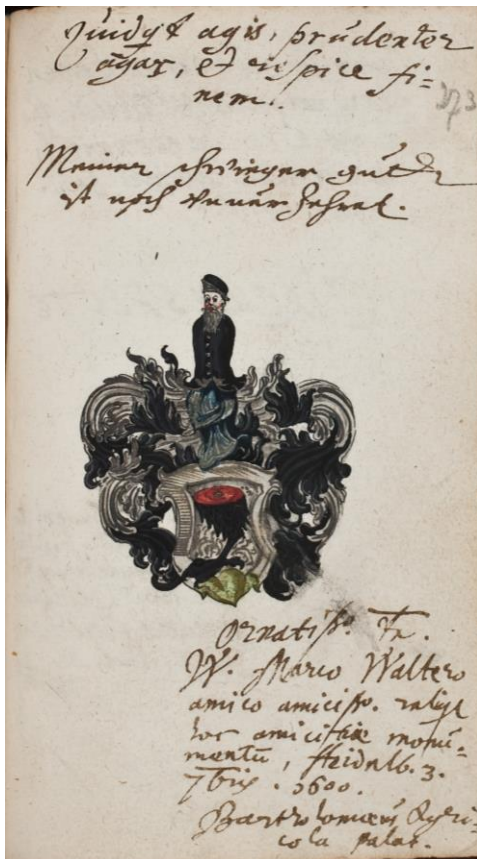 Quidqt agis, prudenter
agas, et respice fi=
nem.
373
Meiner schwieger gut
ist noch vnuerzehret.
Ornatisso.
W. Marco Waltero
amico amicisso. reliqt
hoc amicitiae monu-
mentū, Heidelb. 3.
7bris. 1600.
Bartholomæus Agri-
cola palat.